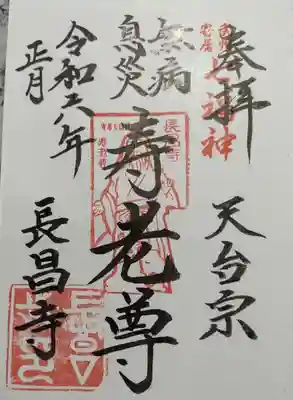 奉拝
七福神
天台宗
無病
息災
寿老尊
長昌寺
令和六年
正月
長昌寺